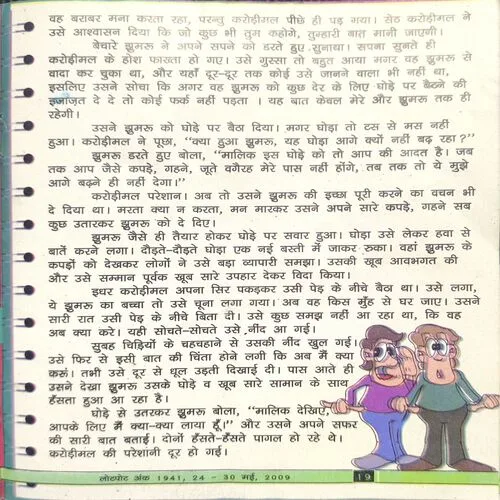 वह बराबर मना करता रहा, परन्तु करोड़ीमल पीछे ही पड़ गया। सेठ करोड़ीमल ने
उसे आश्वासन दिया कि जो कुछ भी तुम कहोगे, तुम्हारी बात मानी जाएगी।
बेचारे झुमरू ने अपने सपने को डरते हुए सुनाया। सपना सुनते ही
करोड़ीमल के होश फाख्ता हो गए। उसे गुस्सा तो बहुत आया मगर वह झुमरू से
वादा कर चुका था, और यहाँ दूर-दूर तक कोई उसे जानने वाला भी नहीं था,
इसलिए उसने सोचा कि अगर वह झुमरू को कुछ देर के लिए घोड़े पर बैठने की
इजाजत दे दे तो कोई फर्क नहीं पड़ता । यह बात केबल मेरे और झुमरू तक ही
रहेगी।
उसने झुमरू को घोड़े पर बैठा दिया। मगर घोड़ा तो टस से मस नहीं
हुआ। करोड़ीमल ने पूछा, “क्या हुआ झुमरू, यह घोड़ा आगे क्यों नहीं बढ़ रहा?”
झुमरू डरते हुए बोला, “मालिक इस घोड़े को तो आप की आदत है। जब
तक आप जैसे कपड़े, गहने, जूते वगैरह मेरे पास नहीं होंगे, तब तक तो ये मुझे
आगे बढ़ने ही नहीं देगा।”
करोड़ीमल परेशान। अब तो उसने झुमरू की इच्छा पूरी करने का वचन भी
दे दिया था। मरता क्या न करता, मन मारकर उसने अपने सारे कपड़े, गहने सब
कुछ उतारकर झुमरू को दे दिए।
झुमरू जैसे ही तैयार होकर घोड़े पर सवार हुआ। घोड़ा उसे लेकर हवा से
बातें करने लगा। दौड़ते-दौड़ते घोड़ा एक नई बस्ती में जाकर रुका। वहां झुमरू के
कपड़ों को देखकर लोगों ने उसे बड़ा व्यापारी समझा। उसकी खूब आवभगत की
और उसे सम्मान पूर्वक खूब सारे उपहार देकर विदा किया।
इधर करोड़ीमल अपना सिर पकड़कर उसी पेड़ के नीचे बैठा था। उसे लगा,
ये झुमरू का बच्चा तो उसे चूना लगा गया। अब वह किस मुँह से घर जाए। उसने
सारी रात उसी पेड़ के नीचे बिता दी। उसे कुछ समझ नहीं आ रहा था, कि वह
अब क्या करे। यही सोचते-सोचते उसे नींद आ गई।
सुबह चिड़ियों के चहचहाने से उसकी नींद खुल गई।
उसे फिर से इसी बात की चिंता होने लगी कि अब मैं क्या
करूं। तभी उसे दूर से धूल उड़ती दिखाई दी। पास आते ही
उसने देखा झुमरू उसके घोड़े व खूब सारे सामान के साथ
हँसता हुआ आ रहा है।
घोड़े से उतरकर झुमरू बोला, “मालिक देखिए,
आपके लिए मैं क्या-क्या लाया हूँ।” और उसने अपने सफर
की सारी बात बताई। दोनों हँसते-हँसते पागल हो रहे थे।
करोड़ीमल की परेशानी दूर हो गई।
लोटपोट अंक 1941, 24 - 30 मई, 2009
19